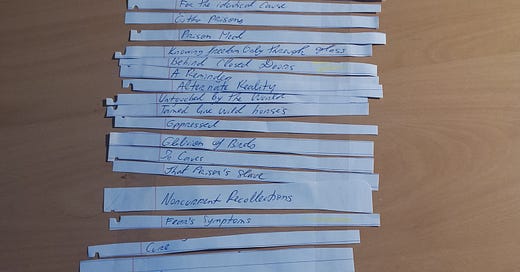 For the identical Cause
Gotha Prisons
Prison Meal
Knowing freedom Only through glass
Behind Closed Doors
A Reminder
Alternate Reality
Untouched by the World
Tamed like wild horses
Oppressed
Oblivion of Birds
So Caves
That Prison's Slave
Noncurrent Recollections
Fear's Symptoms
Cure